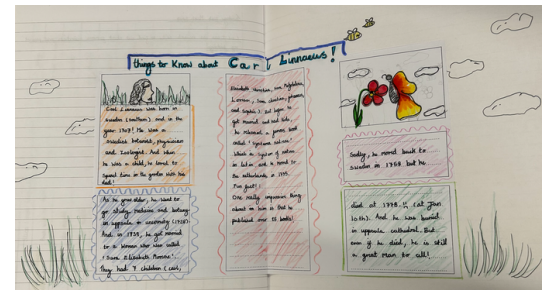 things to know about Carl Linnaeus!
Carl Linnaeus was born in
Sweden (southern) and in the
year 1707! He was a
Swedish botanist, physician
and Zoologist. And when
he was a child, he loved to
spend time in the garden with his
dad!
As he grew older, he went to
go study medicine and botany
in uppsala university (1728)
And in 1739, he got married
to a woman who was called
'Sara Elisabeth Moraea'.
They had 7 children (Carl,
Elisabeth Christina, Sara Magdalena,
Lovisa, Sara Christina, Johannes,
and Sophia). But before he
got married and had kids,
he released a famous book
called 'Systema naturae'
Which is System of nature
in Latin and he moved to
the netherlands in 1735.
Fun fact!
One really impressive thing
about him is that he
published over 70 books!
Sadly, he moved back to
Sweden in 1738 but he
died at 1778 (at Jan
10th). And he was buried
in uppsala cathedral. But
even if he died, he is still
a great man for all!